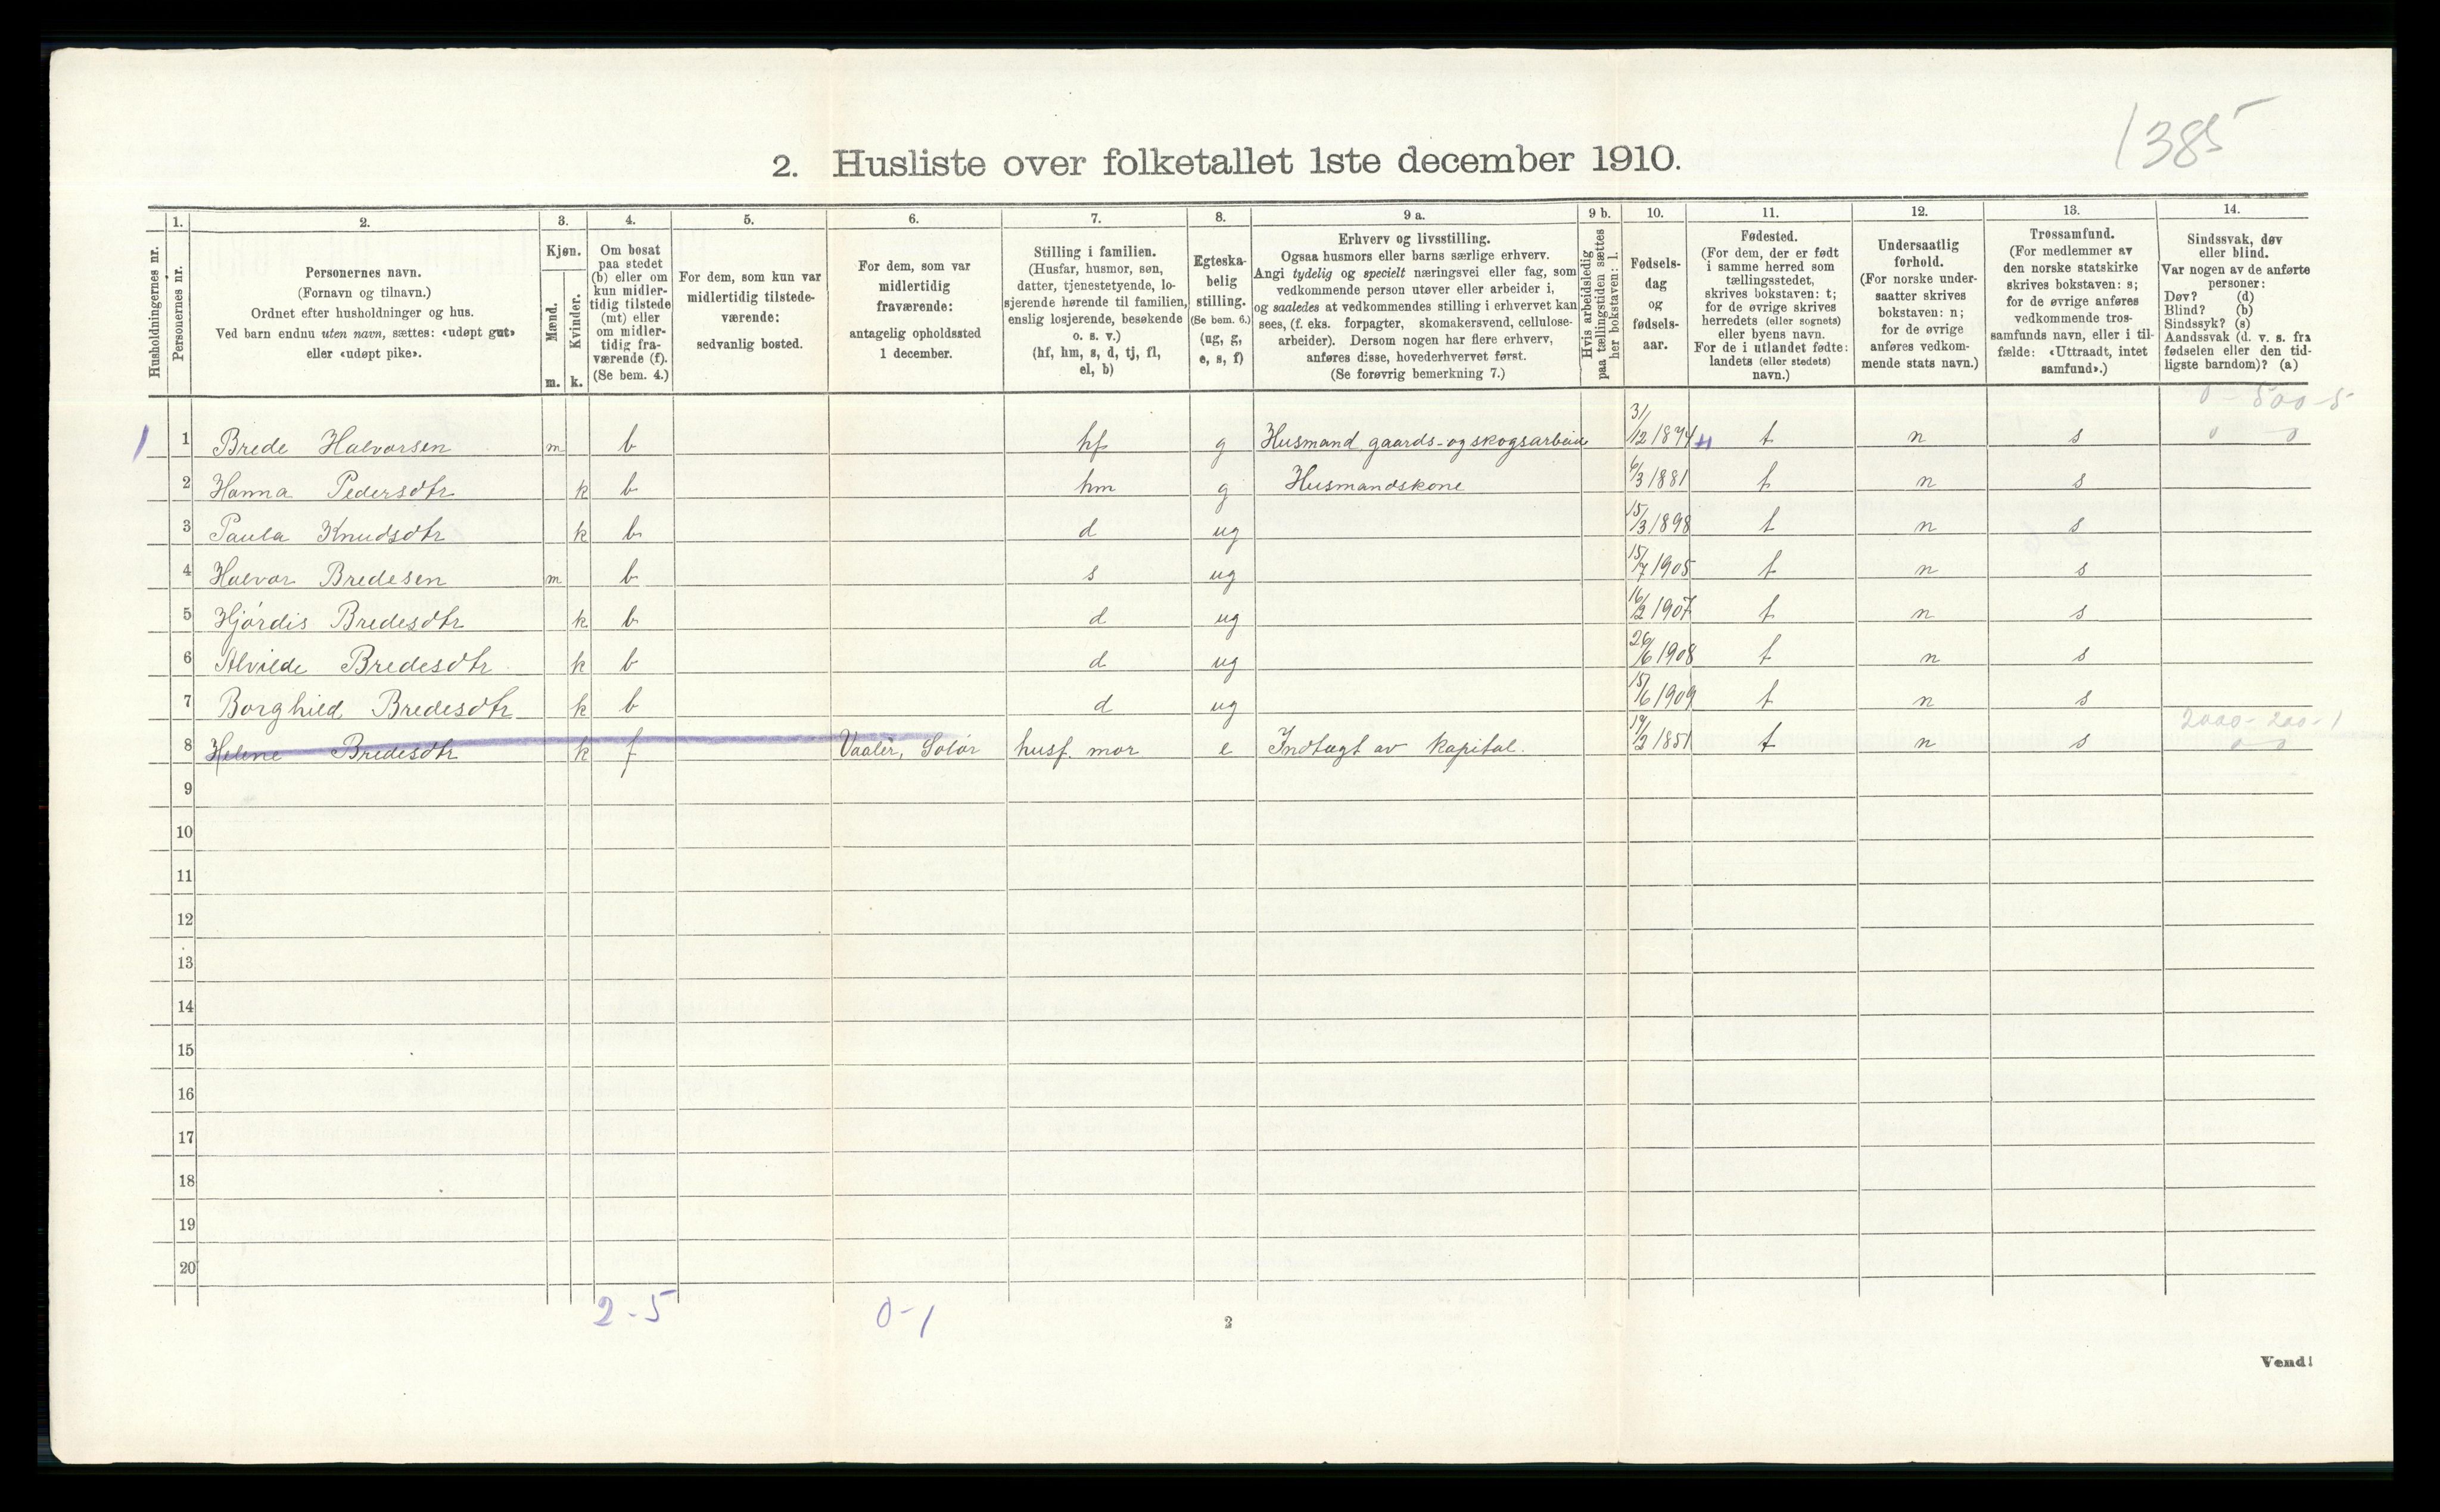 1385
2. Husliste over folketallet 1ste december 1910.
Husholdningernes nr.
1.
Personernes nr.
2.
Personernes navn.
(Fornavn og tilnavn.)
Ordnet efter husholdninger og hus.
Ved barn endnu uten navn, sættes: «udøpt gut»
eller «udøpt pike».
3.
Kjøn.
Mænd.
Kvinder.
m. k.
4.
Om bosat
paa stedet
(b) eller om
kun midler-
tidig tilstede
(mt) eller
om midler-
tidig fra-
værende (f).
(Se bem. 4.)
5.
For dem, som kun var
midlertidig tilstede-
værende:
sedvanlig bosted.
6.
For dem, som var
midlertidig
fraværende:
antagelig opholdssted
1 december.
7.
Stilling i familien.
(Husfar, husmor, søn,
datter, tjenestetyende, lo-
sjerende hørende til familien,
enslig losjerende, besøkende
o. s. v.)
(hf, hm, s, d, tj, fl,
el, b)
8.
Egteska-
belig
stilling.
(Se bem. 6.)
(ug, g,
e, s, f)
9 a.
Erhverv og livsstilling.
Ogsaa husmors eller barns særlige erhverv.
Angi tydelig og specielt næringsvei eller fag, som
vedkommende person utøver eller arbeider i,
og saaledes at vedkommendes stilling i erhvervet kan
sees, (f. eks. forpagter, skomakersvend, cellulose-
arbeider). Dersom nogen har flere erhverv,
anføres disse, hovederhvervet først.
(Se forøvrig bemerkning 7.)
9 b.
Hvis arbeidsledig
paa tællingstiden sættes
her bokstaven: l.
10.
Fødsels-
dag
og
fødsels-
aar.
11.
Fødested.
(For dem, der er født
i samme herred som
tællingsstedet,
skrives bokstaven: t;
for de øvrige skrives
herredets (eller sognets)
eller byens navn.
For de i utlandet fødte:
landets (eller stedets)
navn.)
12.
Undersaatlig
forhold.
(For norske under-
saatter skrives
bokstaven: n;
for de øvrige
anføres vedkom-
mende stats navn.)
13.
Trossamfund.
(For medlemmer av
den norske statskirke
skrives bokstaven: s;
for de øvrige anføres
vedkommende tros-
samfunds navn, eller i til-
fælde: «Uttraadt, intet
samfund».)
14.
Sindssvak, døv
eller blind.
Var nogen av de anførte
personer:
Døv? (d)
Blind? (b)
Sindssyk? (s)
Aandssvak (d. v. s. fra
fødselen eller den tid-
ligste barndom)? (a)
0 - 500-5
1 1 Brede Halvorsen m b hf g Husmand, gaards- og skogsarbeider 31/12 1874 t n s 0 0
2 Hanna Pedersdtr k b hm g Husmandskone 6/3 1881 t n s
3 Paula Knudsdtr k b d ug 15/3 1898 t n s
4 Halvor Bredesen m b s ug 15/7 1905 t n s
5 Hjördis Bredesdtr k b d ug 16/2 1907 t n s
6 Alvilde Bredesdtr k b d ug 26/6 1908 t n s
7 Borghild Bredesdtr k b d ug 15/6 1909 t n s
2000 - 200 - 1
8 Helene Bredesdtr k f Vaaler, Solör husf. mor e Indtægt av kapital. 19/2 1851 t n s 0 0
9
10
11
12
13
14
15
16
17
18
19
20
2 - 5 0 - 1
2
Vend!